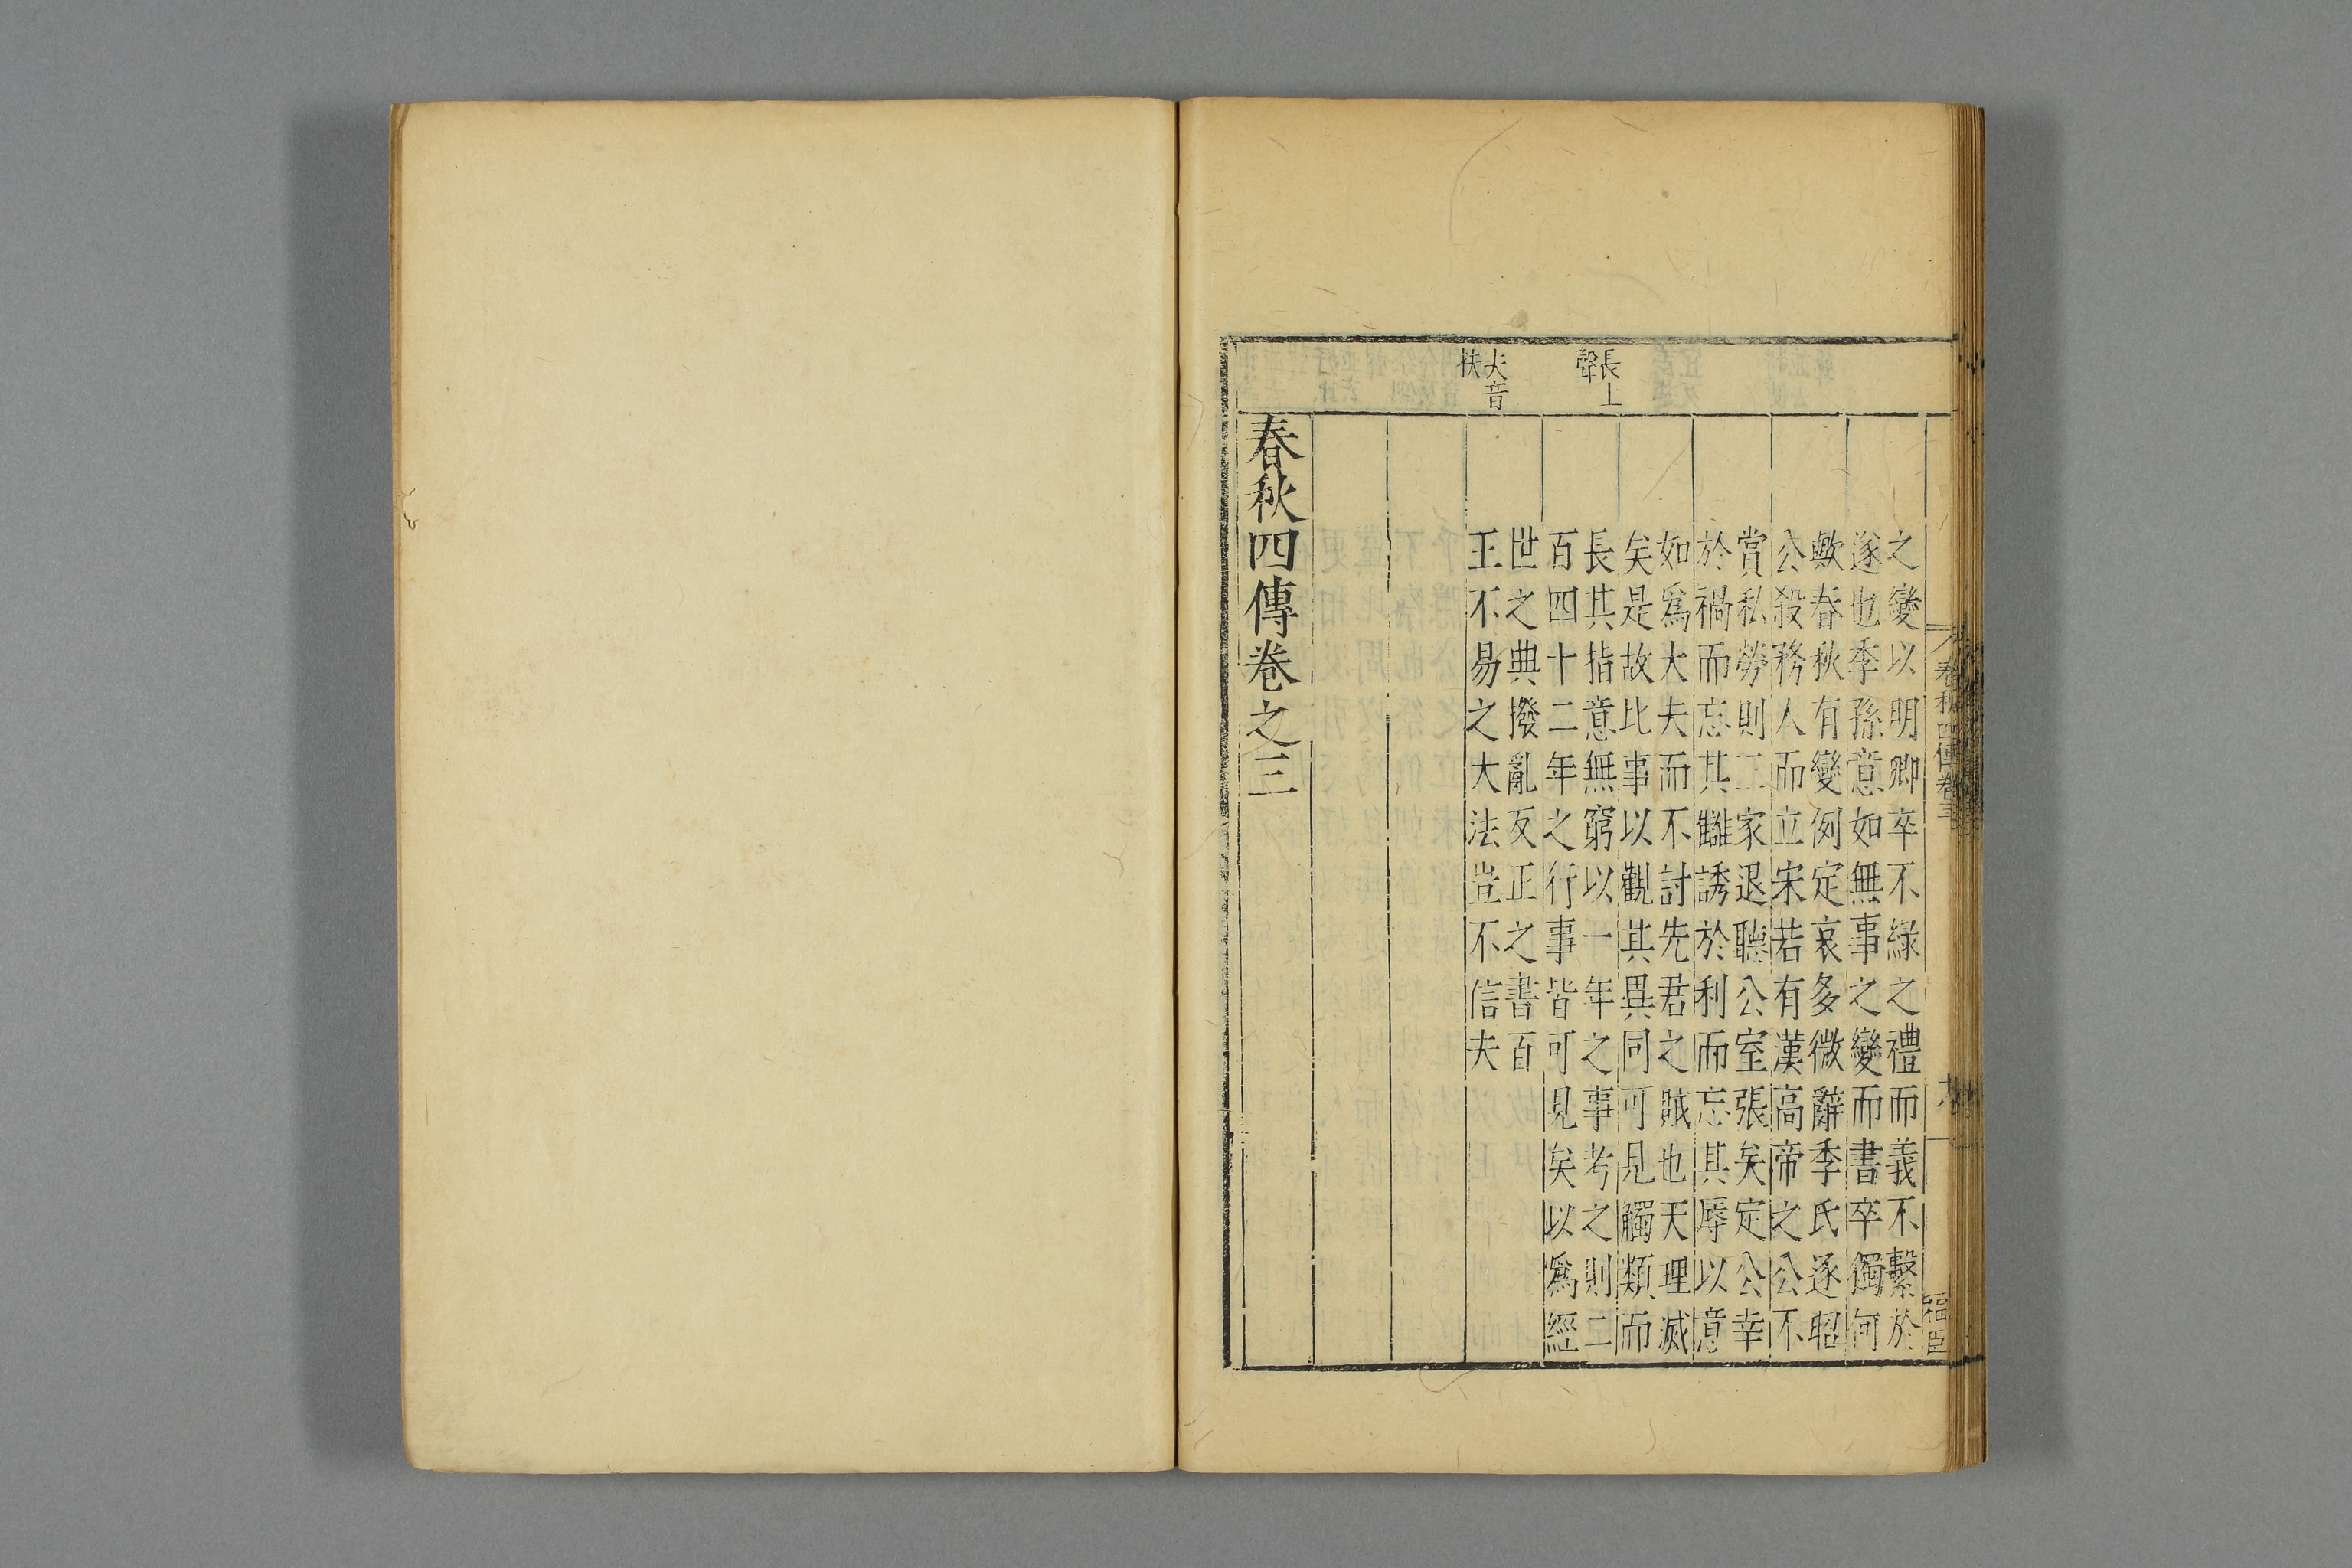 之變以明卿卒不繹之禮而義不繫於
遂也季孫意如無事之變而書卒獨何
歟春秋有變例定哀多微辭季氏逐昭
公殺務人而立宋若有漢高帝之公不
賞私勞則三家退聽公室張矣定公幸
於禍而忘其讎誘於利而忘其辱以意
如爲大夫而不討先君之賊也天理滅
矣是故比事以觀其異同可見觸類而
長其指意無窮以一年之事考之則二
百四十二年之行事皆可見矣以爲經
世之典撥亂反正之書百
王不易之大法豈不信夫
長上
聲
夫音
扶
春秋四傳卷之三
春秋四傳卷三
福臣